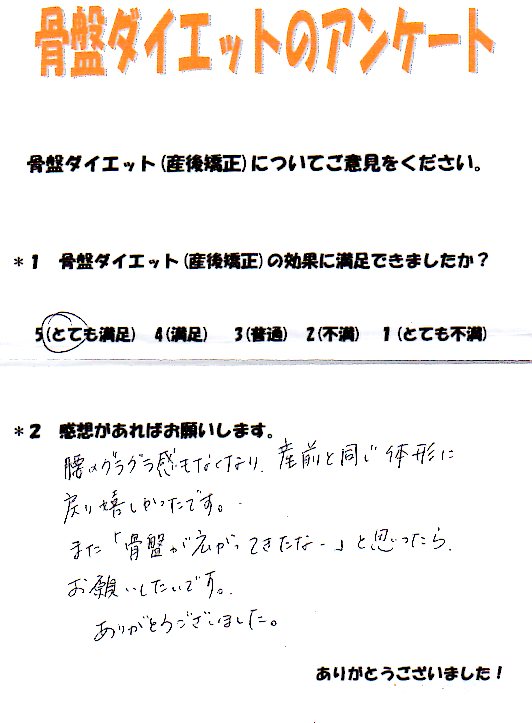 骨盤ダイエットのアンケート
骨盤ダイエット(産後矯正)についてご意見をください。
*1 骨盤ダイエット(産後矯正)の効果に満足できましたか?
5(とても満足) 4(満足) 3(普通) 2(不満) 1(とても不満)
*2 感想があればお願いします。
腰のグラグラ感もなくなり、産前と同じ体形に
戻り嬉しかったです。
また「骨盤が広がってきたなー」と思ったら、
お願いしたいです。
ありがとうございました。
ありがとうございました!